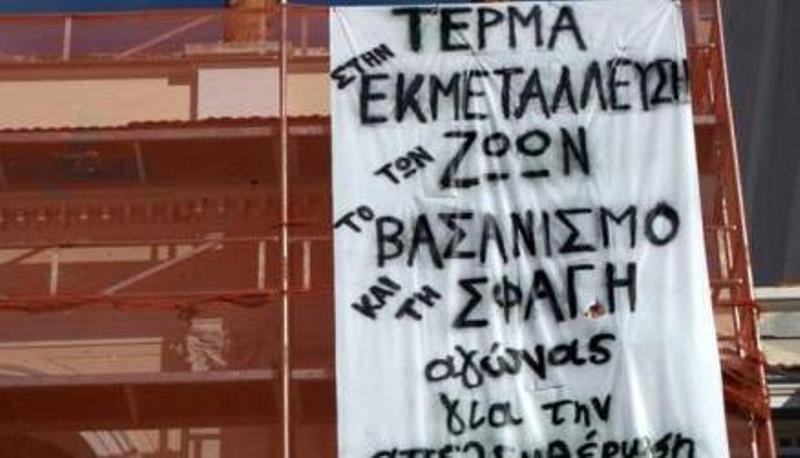 ΤΕΡΜΑ
ΣΤΗΝ
ΕΚΜΕΤΑΛΛΕΥΣΗ
ΤΩΝ ΖΩΩΝ
ΤΟ ΒΑΣΑΝΙΣΜΟ
ΚΑΙ ΤΗ ΣΦΑΓΗ
αγώνας
για την
απελευθέρωση